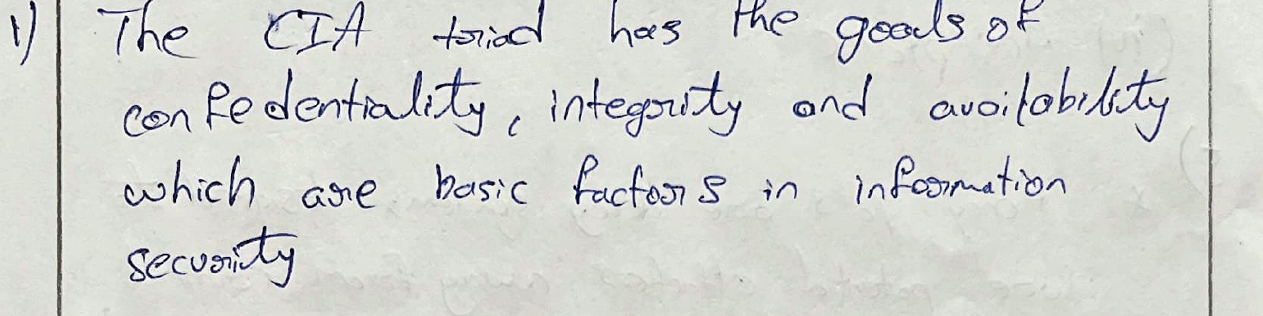 1) The CIA triad has the goals of
confedentiality, integrity and availability
which are basic factors in information
security